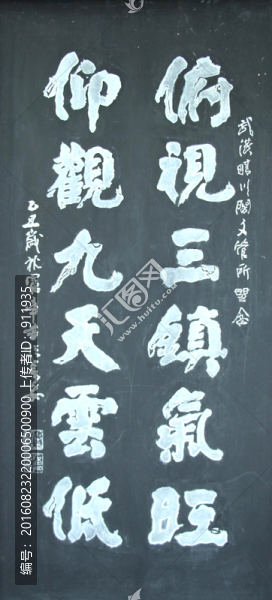 武汉晴川阁文管所留念
俯視三鎮氣旺
仰觀九天雲低
乙丑歲秋
汇图网
www.huitu.com
编号：20160823220006500900 上传者ID：911935